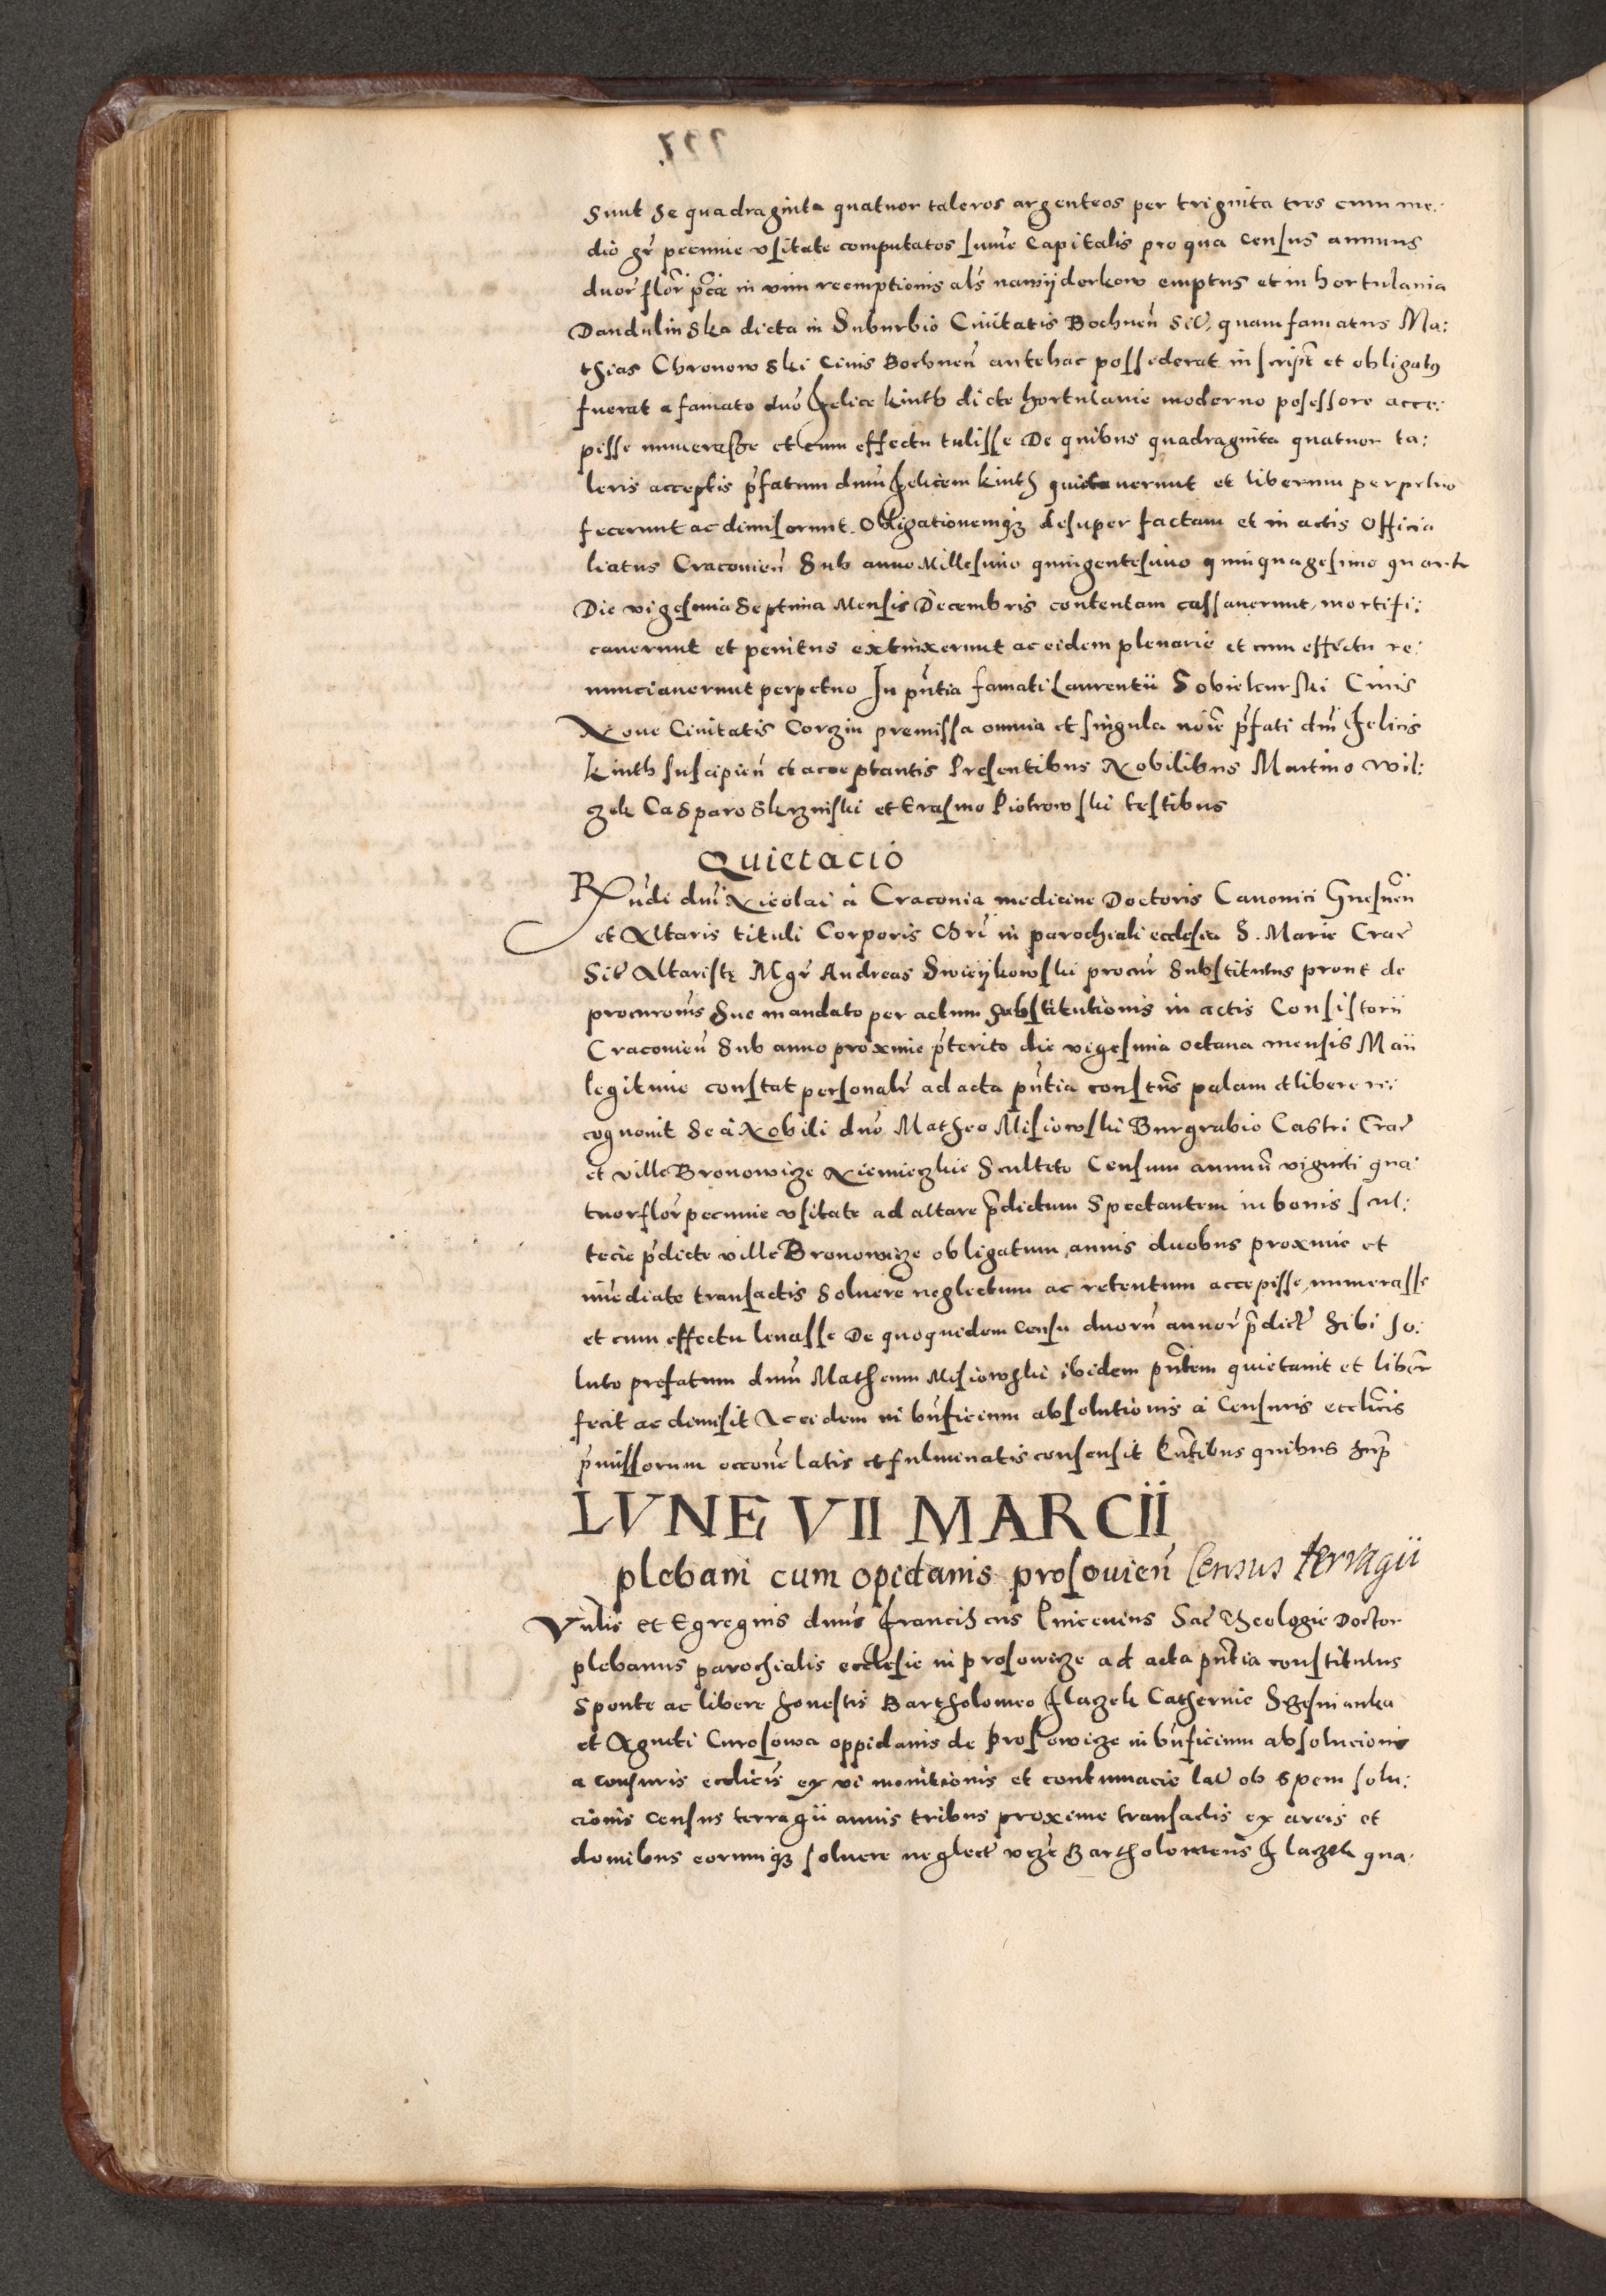 sunt se quadraginta quatuor taleros argenteos per triginta tres cum me:
dio gr̃ pecunie vsitate computatos sum̃e Capitalis pro qua census annuus
duor̃ flor̃ pc̃ie in vim reemptionis als̃ nawÿderkow emptus et in hortulania
Dandulinska dicta in Suburbio Ciuitatis Bochnen̄ sit̃, quam famatus Ma:
thias Chronowski Ciuis Bochnen̄ antehac possederat inscript̃ et obligatꝰ
fuerat a famato dn̄o Felice Kinth dicte hortulanie moderno possessore acce:
pisse numerasse et cum effectu tulisse De quibus quadraginta quatuor ta:
leris acceptis p̃fatum dnm̄ Felicem Kinth quitauerunt et liberum perpetuo
fecerunt ac dimiserunt. Obligationemqꝫ desuper factam et in actis Officia
liatus Cracouien̄ Sub anno Millesimo quingentesimo quinquagesimo quarto
Die vigesima Septima Mensis Decembris contentam cassauerunt, mortifi:
cauerunt et penitus extinxerunt ac eidem plenarie et cum effectu re:
nunciauerunt perpetuo In pn̄tia famati Laurentii Sobiekurski Ciuis
Noue Ciuitatis Corzin premissa omnia et singula noīe p̃fati dn̄i Felicis
Kinth suscipien̄ et acceptantis Presentibus Nobilibus Martino Wil:
zek Casparo Skrzinski et Erasmo Piotrowski testibus
Quietacio
Rn̄di dn̄i Nicolai à Craconia medicine Doctoris Canonici Gnesnen̄
et Altaris tituli Corporis Chrī in parochiali ecclesia S. Marie Crac̃
Sit̃ Altaristę Mgr̃ Andreas Swieÿkowski procur̃ Substitutus prout de
procuronis̃ sue mandato per actum substitutionis in actis Consistorii
Cracouien̄ Sub anno proxime p̃terito die vigesima octaua mensis Maii
legitime constat personalr̃ ad acta pn̄tia constit̃us palam et libere re:
cognouit se à Nobili dn̄o Matheo Misiowski Burgrabio Castri Crac̃
et ville Bronowicze Niemieczkie Sculteto Censum annuū viginti qua:
tuor flor̃ pecunie vsitate ad altare p̃dictum Spectantem in bonis scul:
tecie p̃dicte ville Bronowicze obligatum annis duobus proxime et
im̄ediate transactis soluere neglectum ac retentum accepisse, numerasse
et cum effectu leuasse De quoquidem Censu duorū annor̃ p̃dict̃ sibi so:
luto prefatum dnm̄ Matheum Misiowski ibidem pn̄tem quietauit et liber̃
fecit ac dimisit Ac eidem in bn̄ficium absolutionis à Censuris ecclic̃is
p̃missorum occon̄e latis et fulminatis consensit Pn̄tibus quibus sup̃
LVNE VII MARCII
plebani cum opidanis prosouien̄ Census terragii
Vn̄lis et Egregius dnus̄ Franciscus Sac̃ Theologie Doctor
plebanus parochialis ecclesie in prosowicze ad acta pn̄tia constitutus
Sponte ac libere honestis Bartholomeo Flaczek Catherine
et Agneti Curosowa oppidanis de prossowicze in bn̄ficium absolucionis
a censuris ecclicis̃ ex vi monitionis et contumacie lat̃ ob spem solu:
cionis Census terragii annis tribus proxime transactis ex areis et
domibus eorumqꝫ soluere neglect̃ vcz̃ Bartholomeus Flaczek qua: